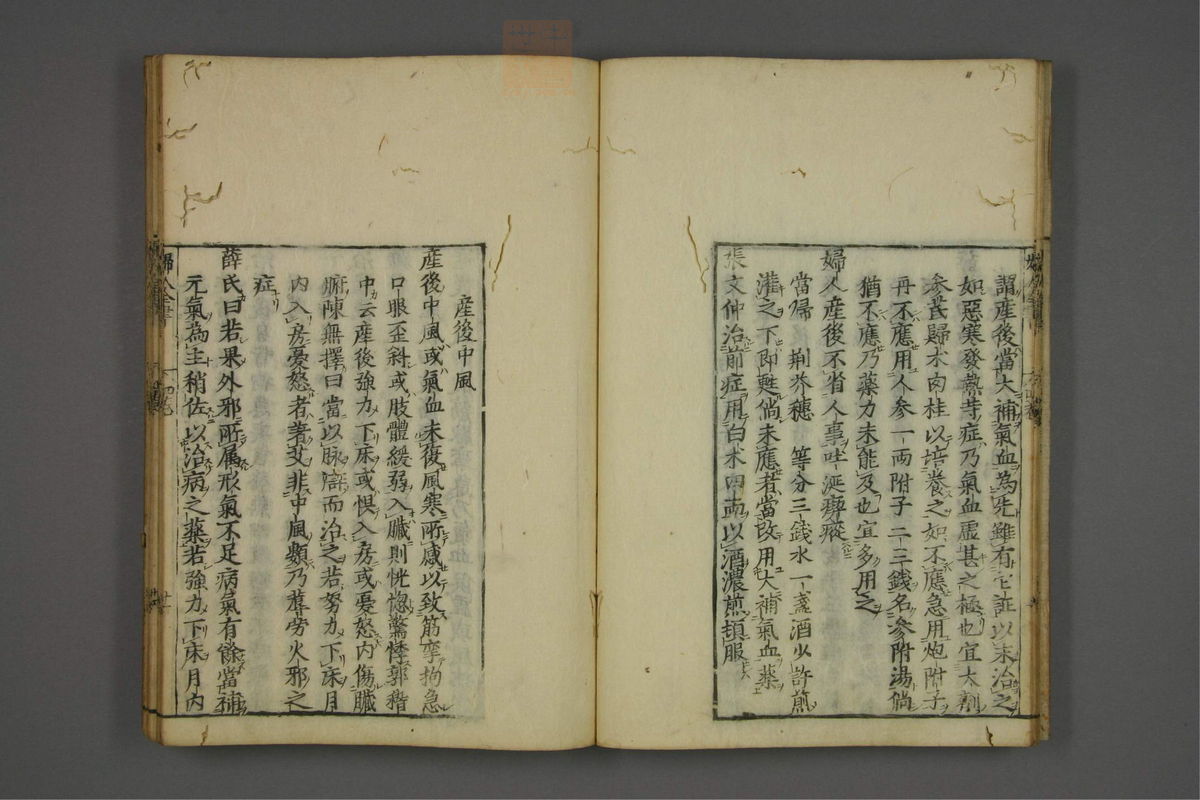 謂産後當大補氣血為先雖有它証以末治之
如惡寒發熱等症乃氣血虚甚之極也宜大劑
参芪歸朮肉桂以培養之如不應急用炮附子
再不應用人参一兩附子二三錢名参附湯倘
猶不應乃藥力未能及也宜多用之
婦人産後不省人事吐涎瘈瘲
當帰 荆芥穗 等分三錢水一盞酒少許煎
灌之下即甦倘未應者當改用大補氣血藥
張文仲治前症用白朮四兩以酒濃煎頓服
産後中風
産後中風或氣血未復風寒所感以致筋孿拘急
口眼歪斜或肢體緩弱入臓則恍惚驚悸郭稽
中云産後強力下床或惧入房或憂怒内傷臓
腑陳無擇曰當以脉辯而治之若努力下床月
内入房憂怒者著艾非中風類乃蓐旁火邪之
症
薛氏曰若果外邪所属形氣不足病氣有餘當補
元氣為主稍佐以治病之藥若強力下床月内